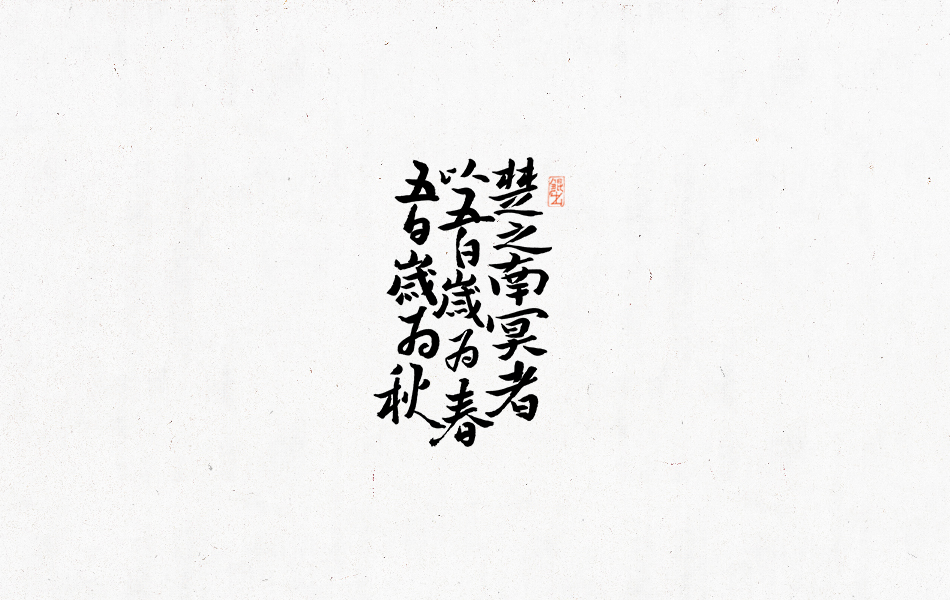 楚之南冥者
以五百歲为春
五百歲为秋